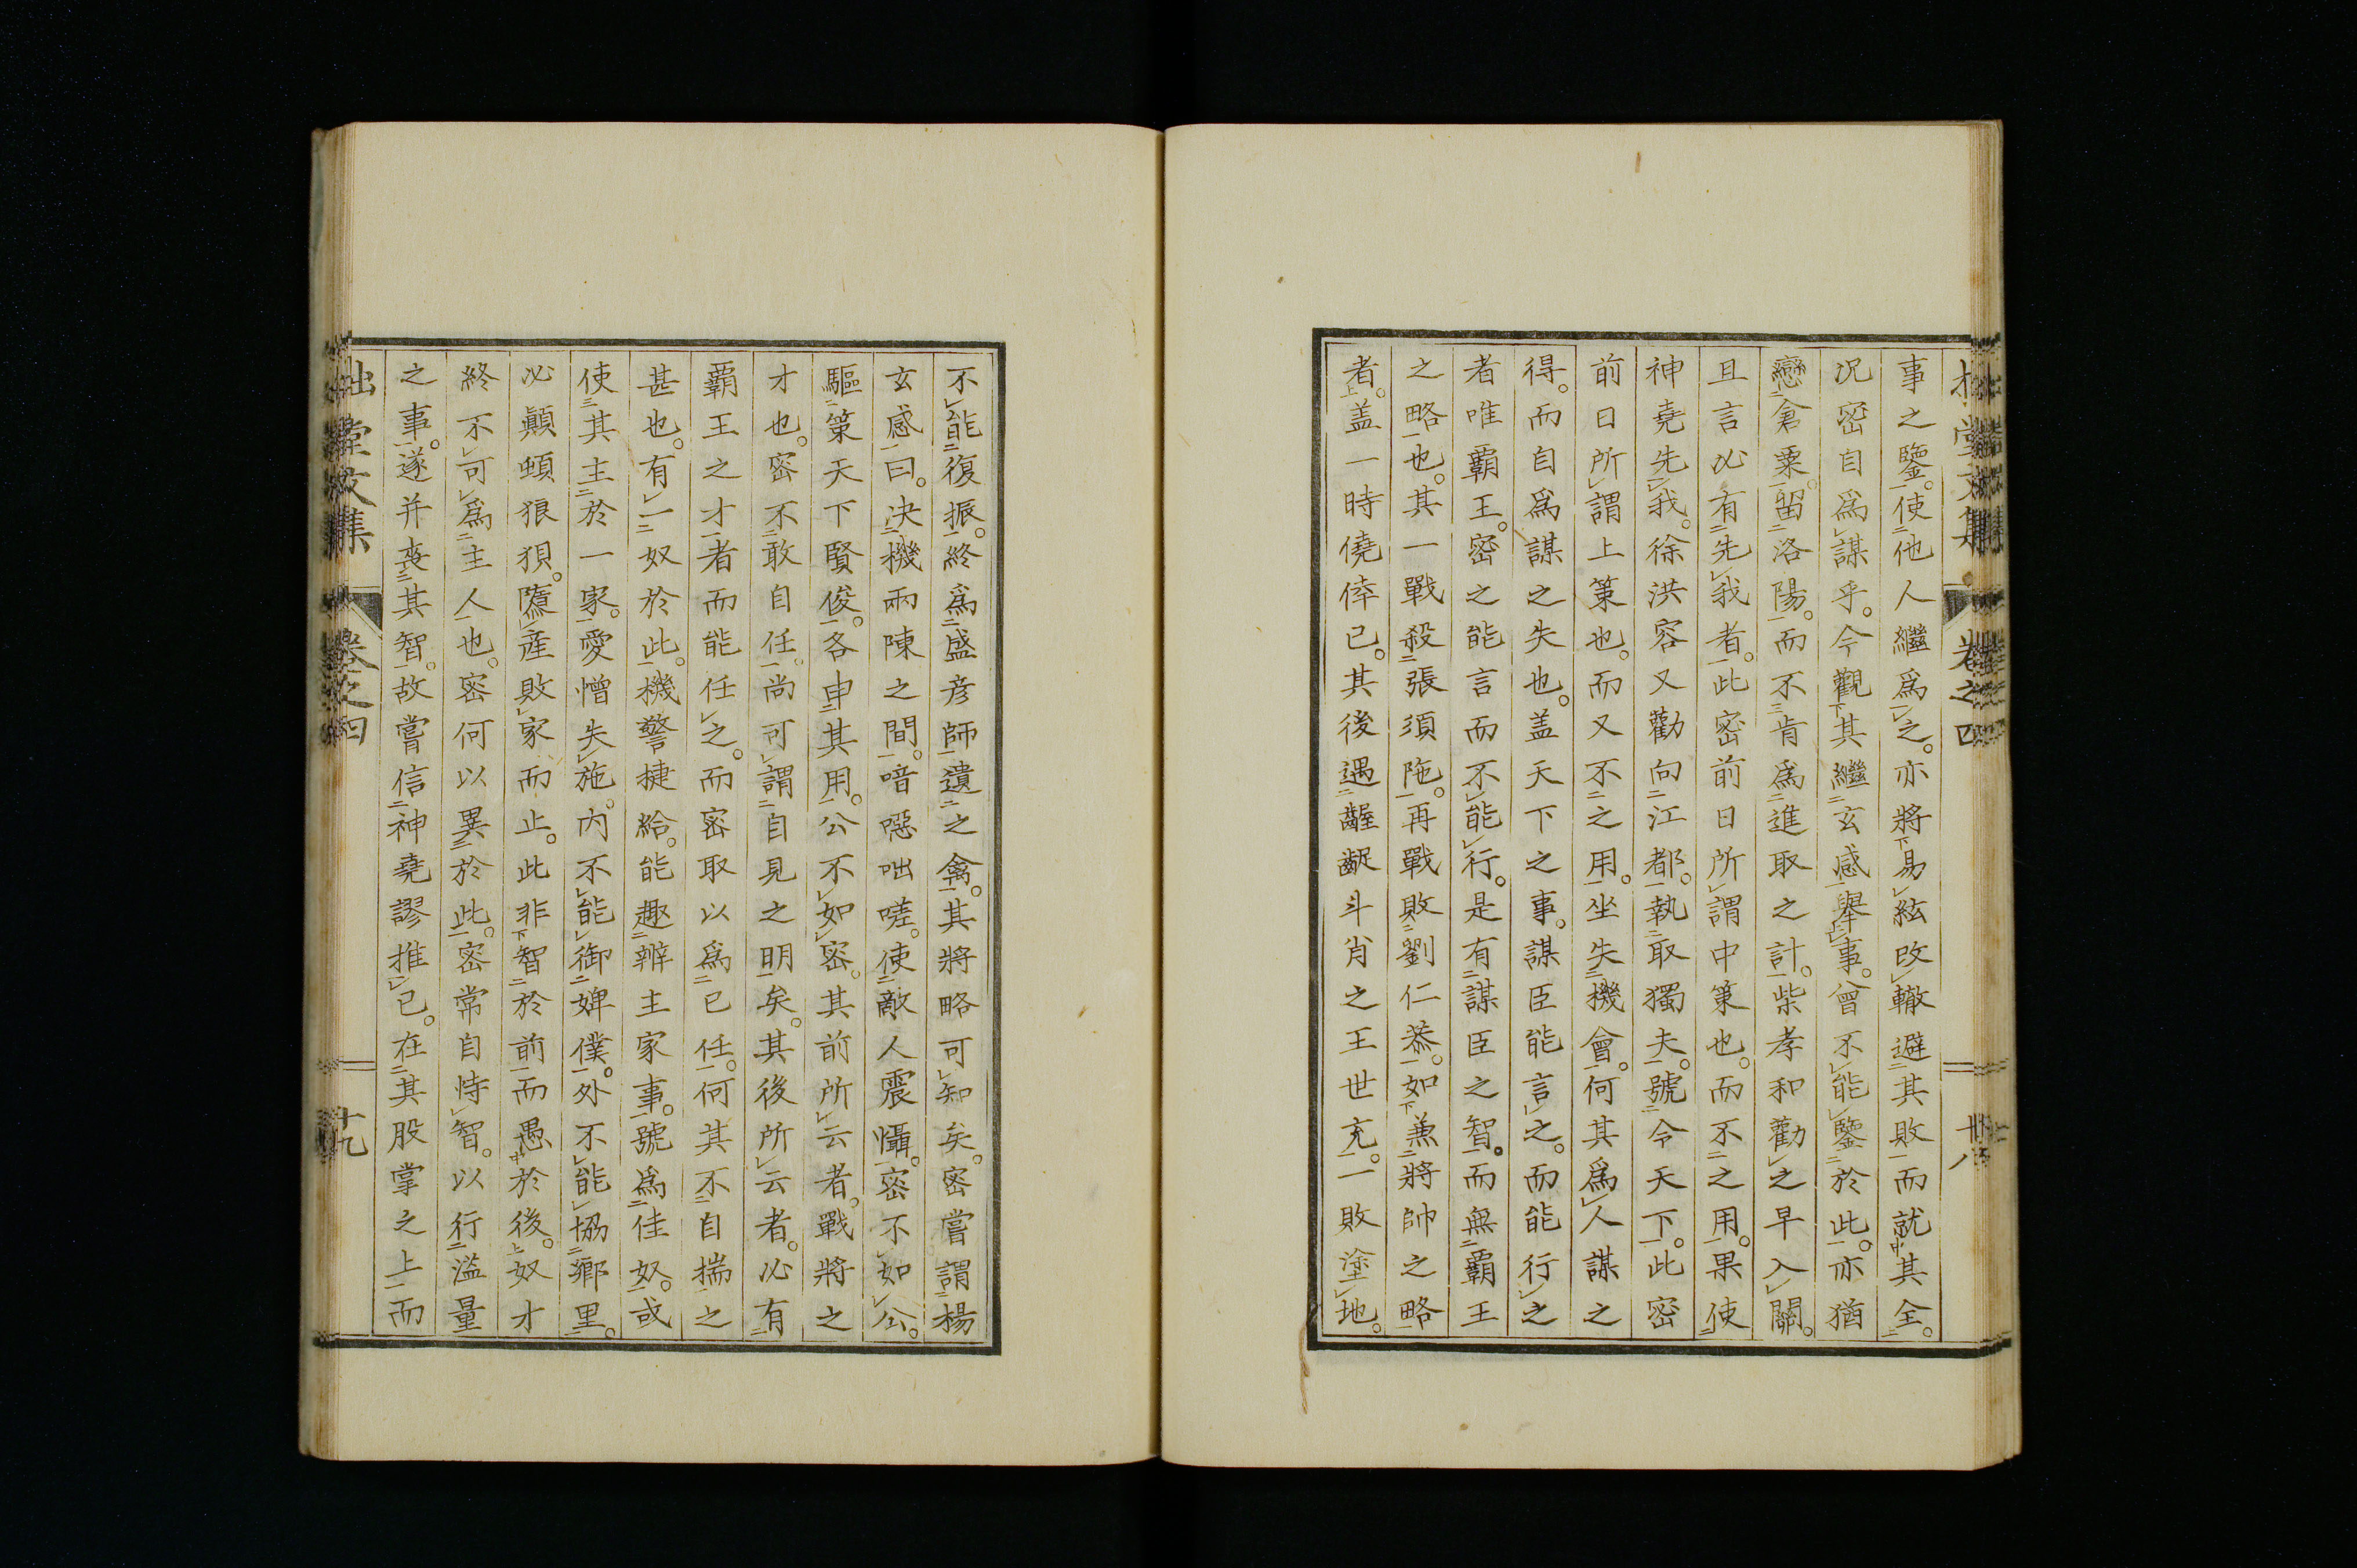 事之鑒。使他人繼爲之。亦將易絃改轍避其敗而就其全。
況密自爲謀乎。今觀其繼玄感舉事。曾不能鑒於此。亦猶
戀倉粟。留洛陽。而不肯爲進取之計。柴孝和勸之早入關。
且言必有先我者。此密前日所謂中策也。而不之用。果使
神堯先我。徐洪容又勸向江都。執取獨夫。號令天下。此密
前日所謂上策也。而又不之用。坐失機會。何其爲人謀之
得。而自爲謀之失也。盖天下之事。謀臣能言之。而能行之
者唯霸王。密之能言而不能行。是有謀臣之智。而無霸王
之略也。其一戰殺張須陁。再戰敗劉仁恭。如兼將帥之略
者。盖一時僥倖已。其後遇齷齪斗肖之王世充。一敗塗地。
卷之四
十八
不能復振。終爲盛彦師遺之禽。其將略可知矣。密嘗謂楊
玄感曰。决機兩陳之間。喑噁咄嗟。使敵人震懾。密不如公。
驅策天下賢俊。各申其用。公不如密。其前所云者。戰將之
才也。密不敢自任。尚可謂自見之明矣。其後所云者。必有
霸王之才者而能任之。而密取以爲已任。何其不自揣之
甚也。有一奴於此。機警捷給。能趣辨主家事。號爲佳奴。或
使其主於一家。愛憎失施。内不能御婢僕。外不能協鄉里。
必顚蹎狼狽。隳產敗家而止。此非智於前而愚於後。奴才
終不可爲主人也。密何以異於此。密常自恃智。以行溢量
之事。遂并喪其智。故嘗信神堯謬推已。在其股掌之上而
拙堂文集
卷之四
十九